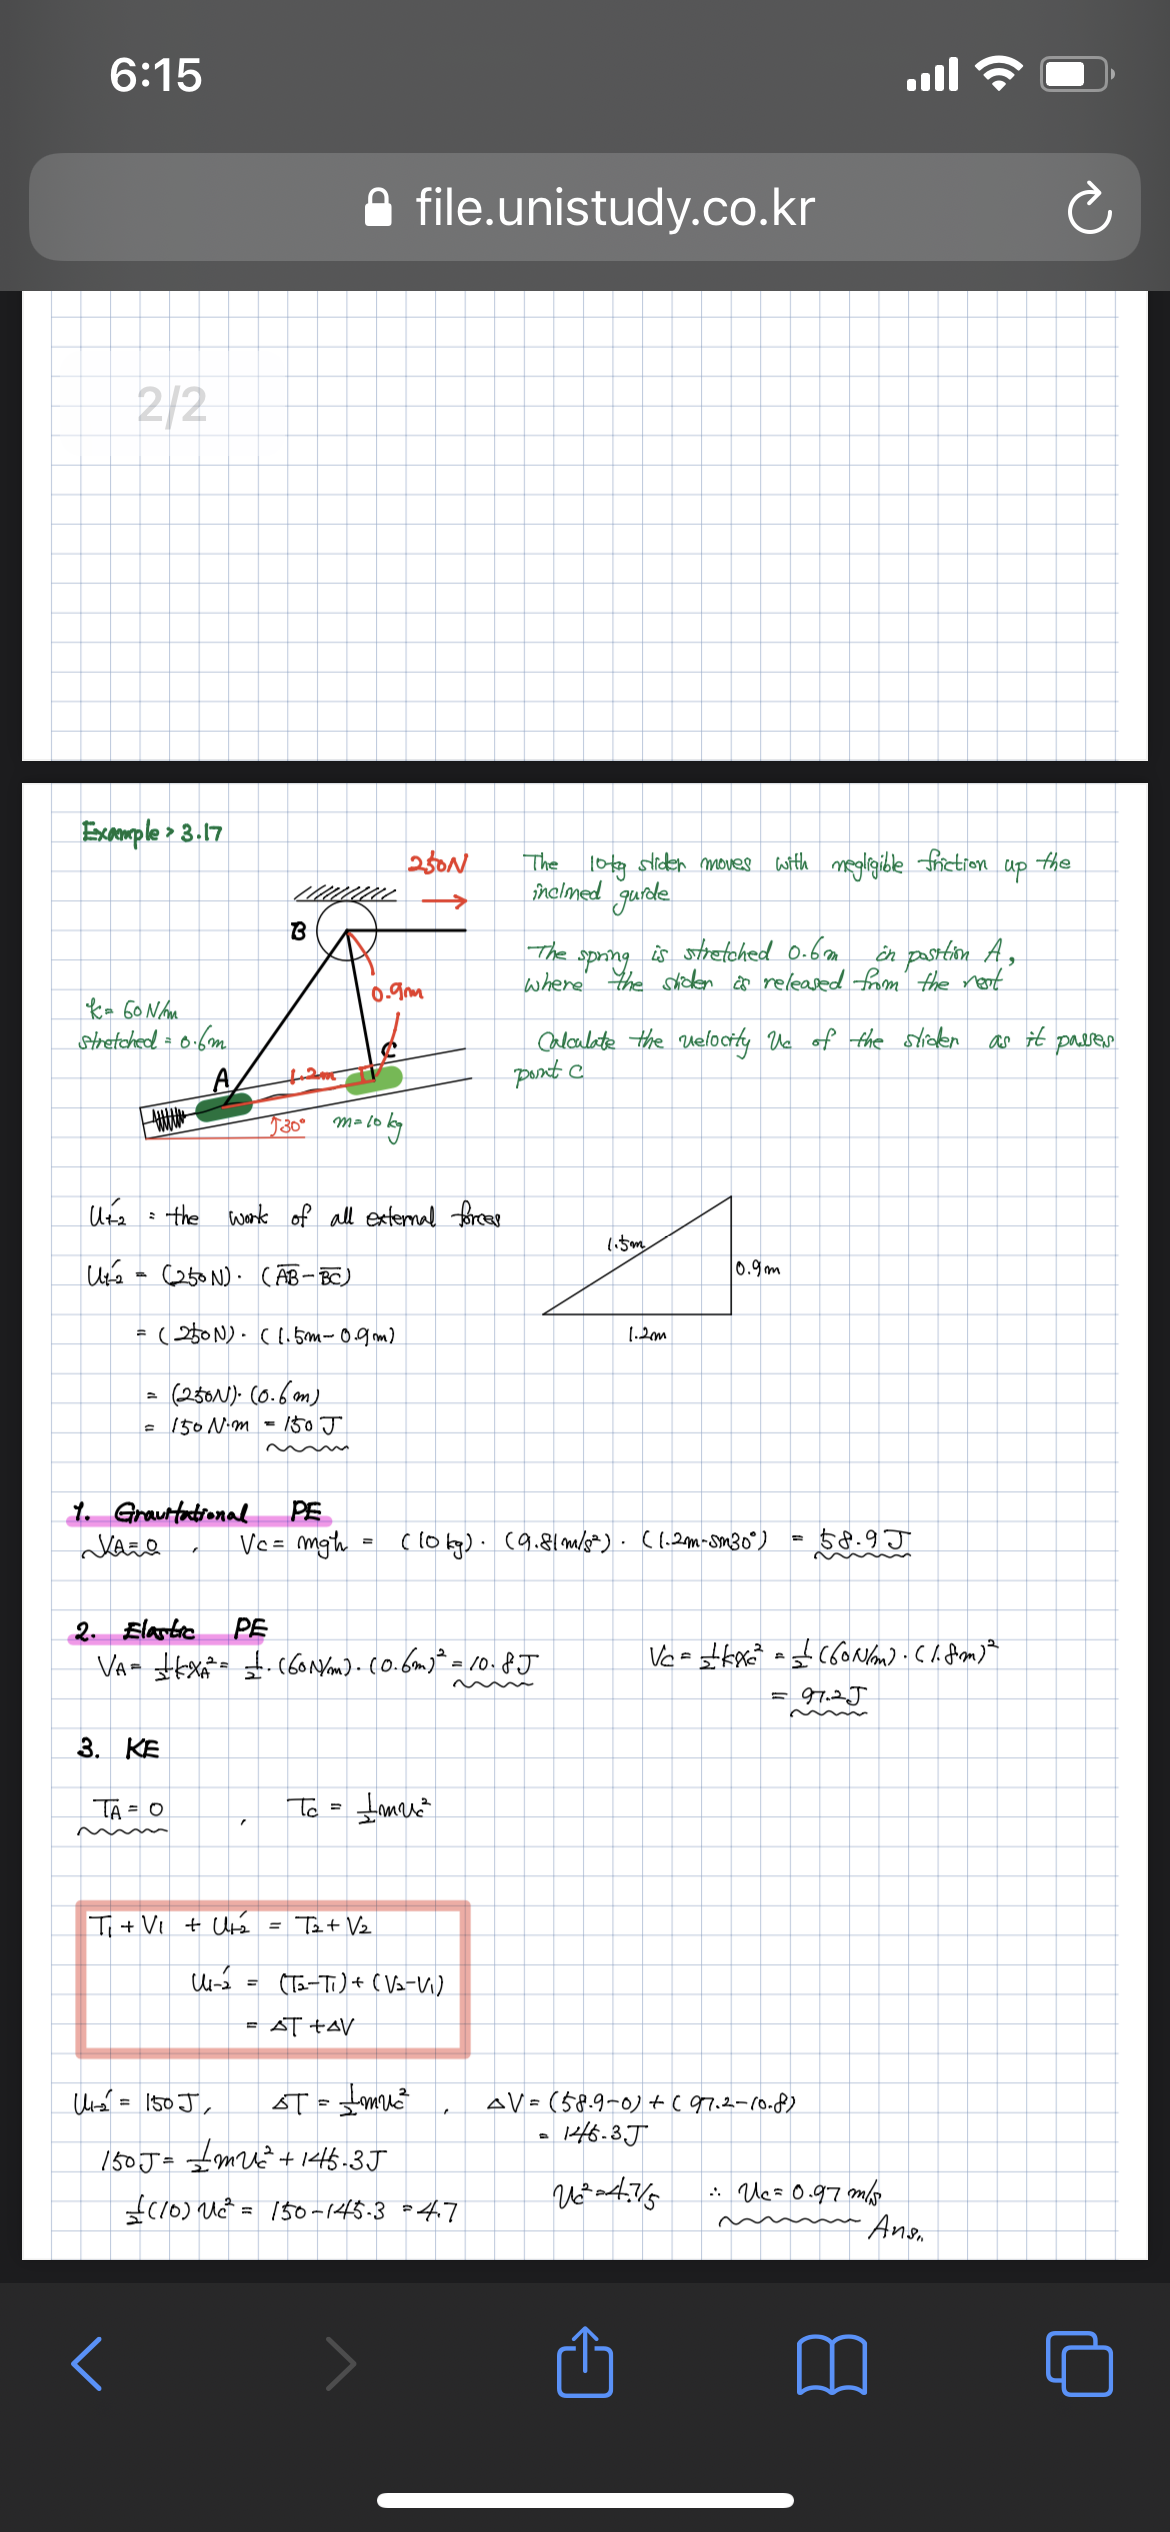 6:15
file.unistudy.co.kr
2/2
Example > 3.17
250N
B
0.9m
k = 60 N/m
stretched = 0.6m
A
1.2m
C
30°
m = 10 kg
The 10kg slider moves with negligible friction up the
inclined guide
The spring is stretched 0.6m in position A,
where the slider is released from the rest
Calculate the velocity υc of the slider as it passes
point C
U'1-2 = the work of all external forces
U'1-2 = (250N) · (AB - BC)
= (250N) · (1.5m - 0.9m)
= (250N) · (0.6m)
= 150 N·m = 150 J
1.5m
0.9m
1.2m
1. Gravitational PE
VA = 0 , Vc = mgh = (10 kg) · (9.81m/s²) · (1.2m·sin30°) = 58.9 J
2. Elastic PE
VA = ½kxA² = ½ · (60N/m) · (0.6m)² = 10.8 J
Vc = ½kxc² = ½ (60N/m) · (1.8m)²
= 97.2J
3. KE
TA = 0 , Tc = ½mυc²
T1 + V1 + U'1-2 = T2 + V2
U'1-2 = (T2 - T1) + (V2 - V1)
= ΔT + ΔV
U'1-2 = 150 J, ΔT = ½mυc² , ΔV = (58.9-0) + (97.2-10.8)
= 145.3J
150J = ½mυc² + 145.3J
½(10)υc² = 150 - 145.3 = 4.7
υc² = 4.7/5 ∴ υc = 0.97 m/s
Ans.